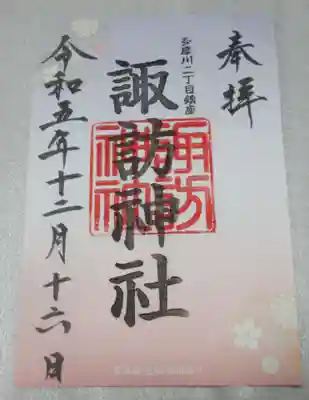 奉拝
多摩川二丁目鎮座
諏訪神社
令和五年十二月十六日